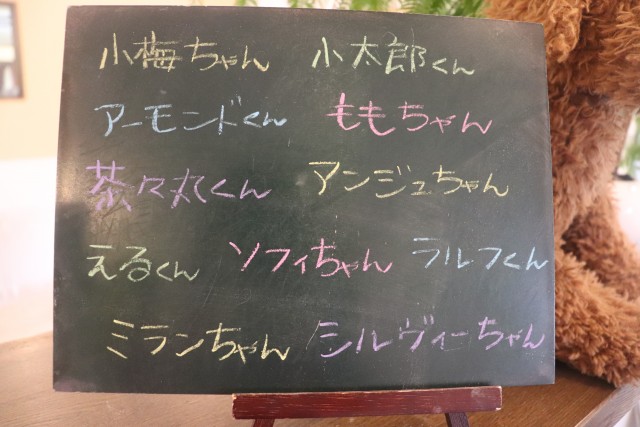 小梅ちゃん 小太郎くん
アーモンドくん ももちゃん
茶々丸くん アンジュちゃん
えるくん ソフィちゃん ラルフくん
ミランちゃん シルヴィーちゃん